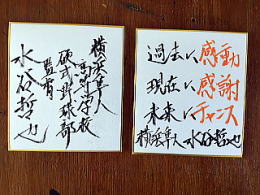 横浜隼人
高等学校
硬式野球部
監督
水谷哲也
過去に感動
現在に感謝
未来にチャンス
横浜隼人 水谷哲也